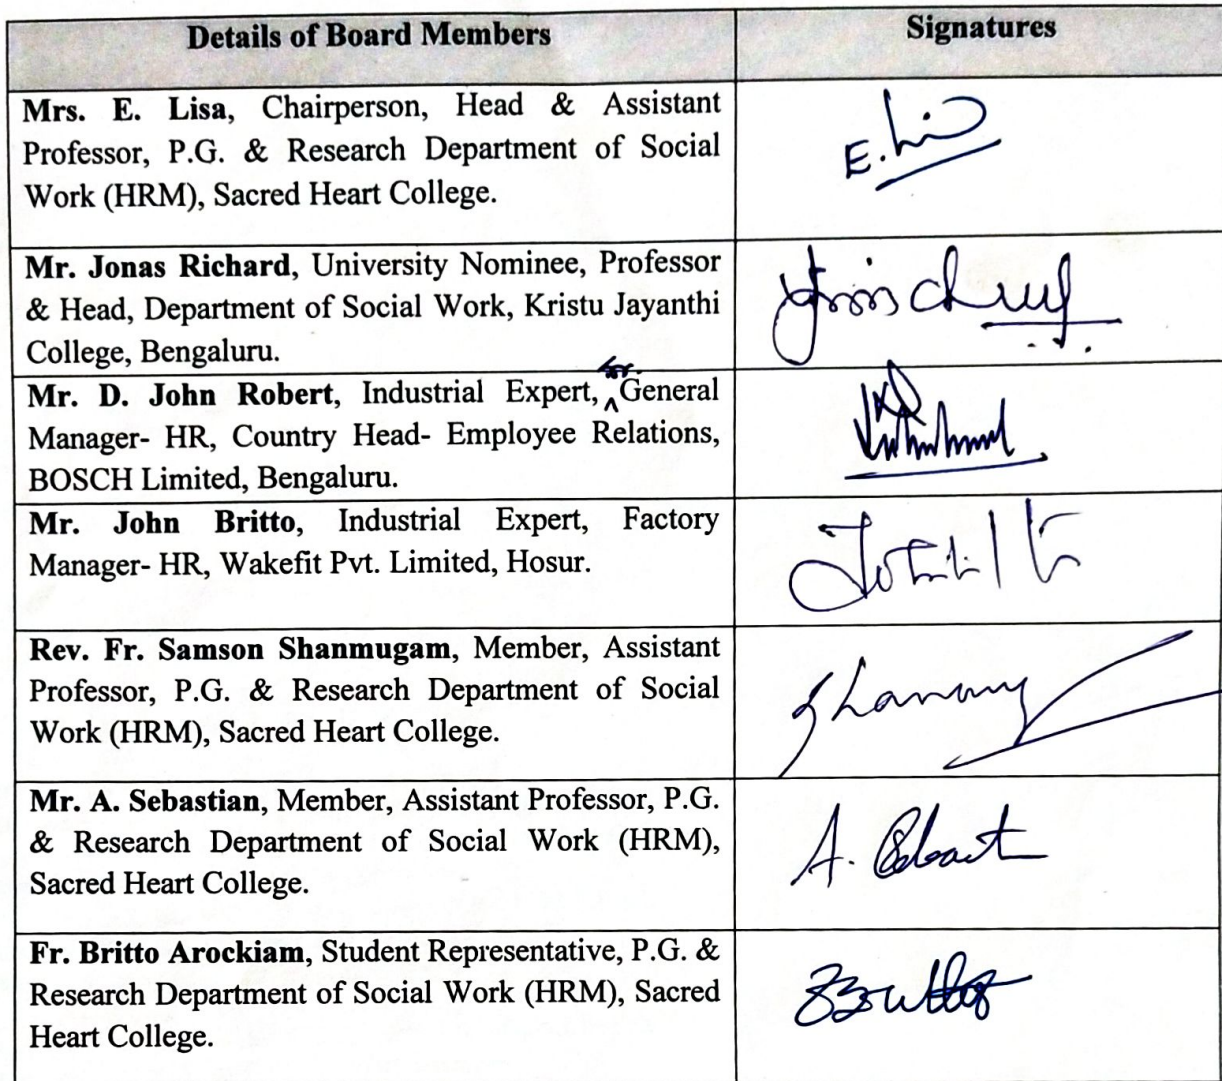 Details of Board Members
Signatures
Mrs. E. Lisa, Chairperson, Head & Assistant
Professor, P.G. & Research Department of Social
Work (HRM), Sacred Heart College.
E. Lis
Mr. Jonas Richard, University Nominee, Professor
& Head, Department of Social Work, Kristu Jayanthi
College, Bengaluru.
Mr. D. John Robert, Industrial Expert, General
Manager- HR, Country Head- Employee Relations,
BOSCH Limited, Bengaluru.
Mr. John Britto, Industrial Expert, Factory
Manager- HR, Wakefit Pvt. Limited, Hosur.
Rev. Fr. Samson Shanmugam, Member, Assistant
Professor, P.G. & Research Department of Social
Work (HRM), Sacred Heart College.
Mr. A. Sebastian, Member, Assistant Professor, P.G.
& Research Department of Social Work (HRM),
Sacred Heart College.
Fr. Britto Arockiam, Student Representative, P.G. &
Research Department of Social Work (HRM), Sacred
Heart College.